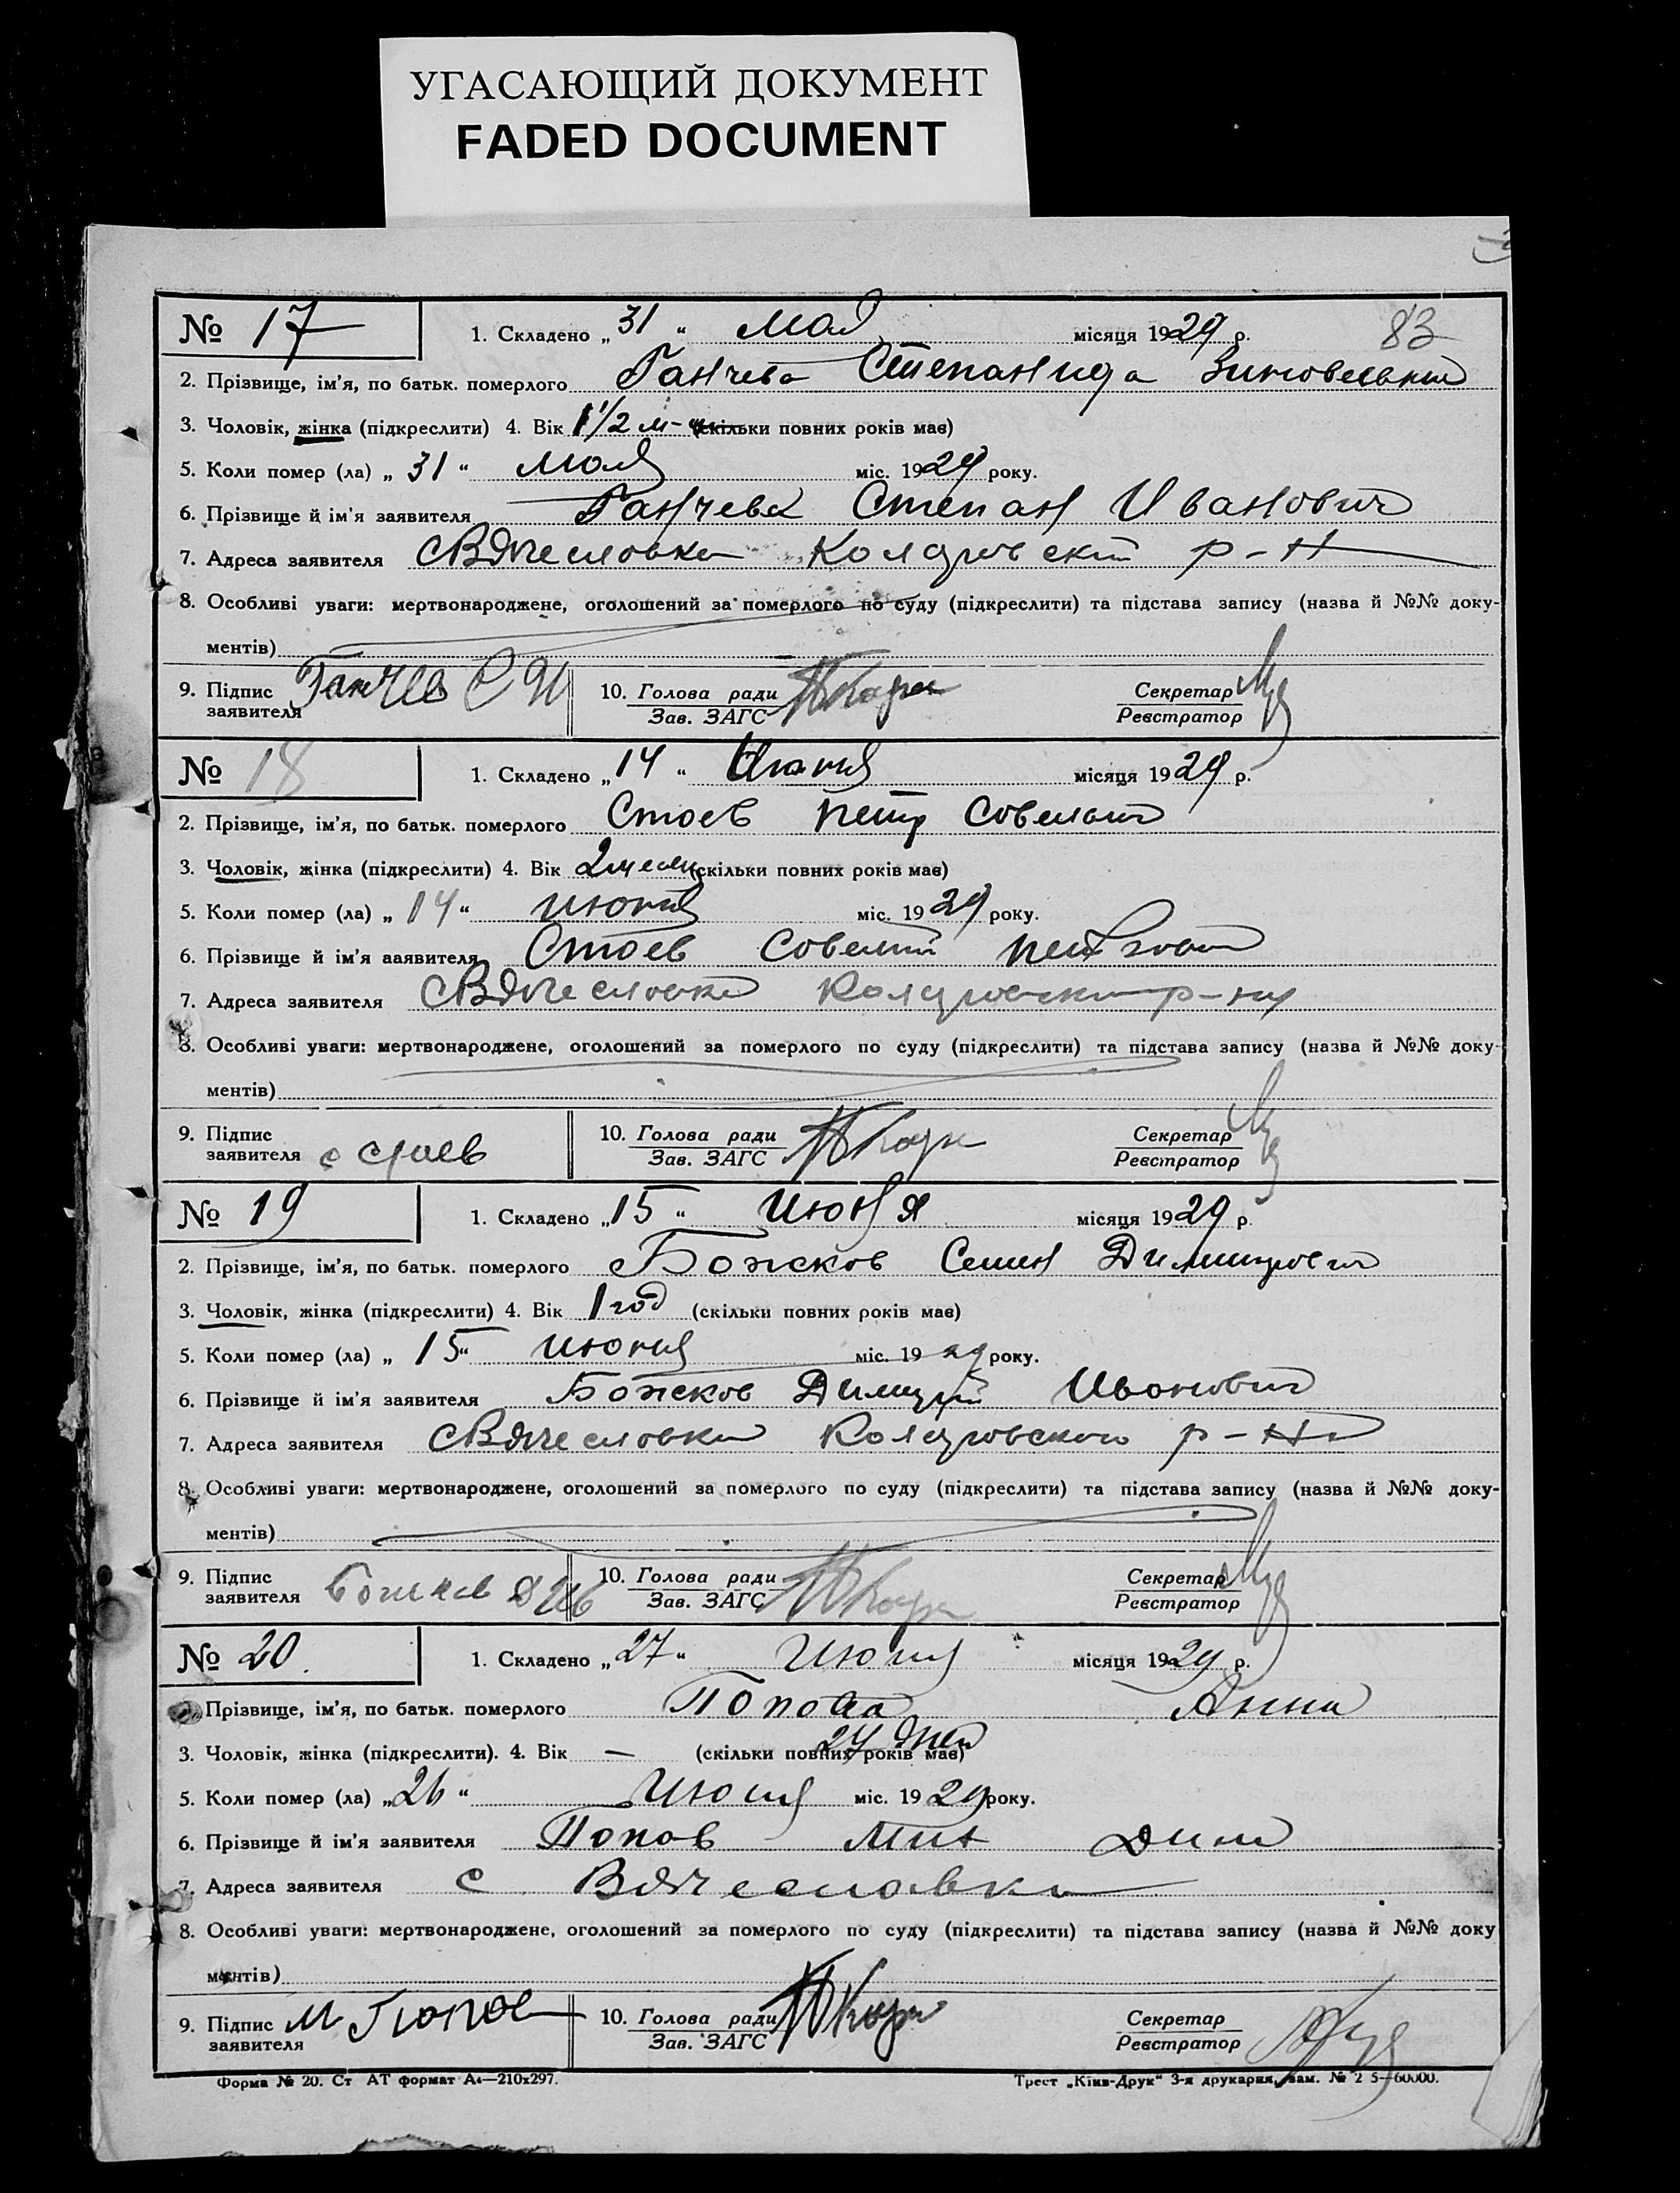 УГАСАЮЩИЙ ДОКУМЕНТ
FADED DOCUMENT
№ 17 1. Складено „31“ Мая місяця 1929 р. 83
2. Прізвище, ім'я, по батьк. померлого Ганчева Степанида
3. Чоловік, жінка (підкреслити) 4. Вік 1 1/2 м-ц (скільки повних років має)
5. Коли помер (ла) „31“ Мая міс. 1929 року.
6. Прізвище й ім'я заявителя Ганчева Степан Иванович
7. Адреса заявителя с Вячеславка Коларовский р-н
8. Особливі уваги: мертвонароджене, оголошений за померлого по суду (підкреслити) та підстава запису (назва й №№ доку-
ментів)
9. Підпис заявителя Ганчев С И 10. Голова ради Зав. ЗАГС Секретар Реєстратор
№ 18 1. Складено „14“ Июня місяця 1929 р.
2. Прізвище, ім'я, по батьк. померлого Стоев Петр Совельич
3. Чоловік, жінка (підкреслити) 4. Вік 2 месяц (скільки повних років має)
5. Коли помер (ла) „14“ июня міс. 1929 року.
6. Прізвище й ім'я заявителя Стоев Совелий Петрович
7. Адреса заявителя с Вячеславка Коларовский р-на
8. Особливі уваги: мертвонароджене, оголошений за померлого по суду (підкреслити) та підстава запису (назва й №№ доку-
ментів)
9. Підпис заявителя с стоев 10. Голова ради Зав. ЗАГС Секретар Реєстратор
№ 19 1. Складено „15“ Июня місяця 1929 р.
2. Прізвище, ім'я, по батьк. померлого Божков Семен Димитрович
3. Чоловік, жінка (підкреслити) 4. Вік 1 год (скільки повних років має)
5. Коли помер (ла) „15“ июня міс. 1929 року.
6. Прізвище й ім'я заявителя Божков Димитрий Иванович
7. Адреса заявителя с Вячеславка Коларовского р-на
8. Особливі уваги: мертвонароджене, оголошений за померлого по суду (підкреслити) та підстава запису (назва й №№ доку-
ментів)
9. Підпис заявителя Божков Д Ив 10. Голова ради Зав. ЗАГС Секретар Реєстратор
№ 20 1. Складено „27“ Июня місяця 1929 р.
2. Прізвище, ім'я, по батьк. померлого Попова Анна
3. Чоловік, жінка (підкреслити). 4. Вік — (скільки повних років має) 24 дней
5. Коли помер (ла) „26“ Июня міс. 1929 року.
6. Прізвище й ім'я заявителя Попов Мих Дим
7. Адреса заявителя с Вячеславка
8. Особливі уваги: мертвонароджене, оголошений за померлого по суду (підкреслити) та підстава запису (назва й №№ доку
ментів)
9. Підпис заявителя М Попов 10. Голова ради Зав. ЗАГС Секретар Реєстратор
Форма № 20. Ст АТ формат А4—210х297. Трест „Київ-Друк“ 3-я друкарня, зам. № 2 5—60000.